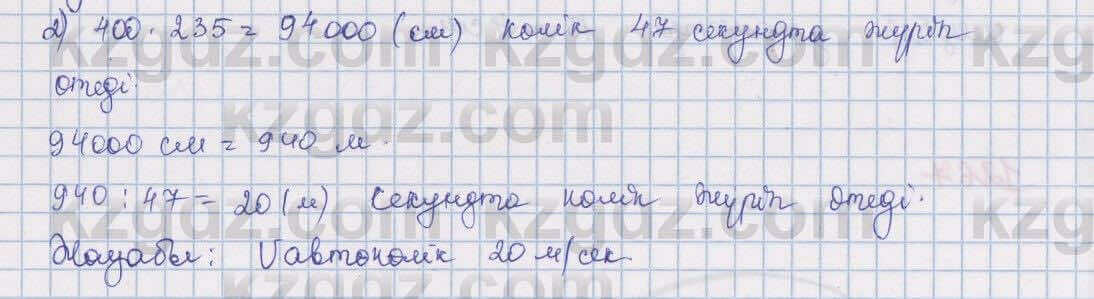 2) 400 · 235 = 94000 (см) көлік 47 секундта жүріп
өтеді.
94000 см = 940 м.
940 : 47 = 20 (м) секундта көлік жүріп өтеді.
Жауабы: Vавтокөлік 20 м/сек
kzgdz.com